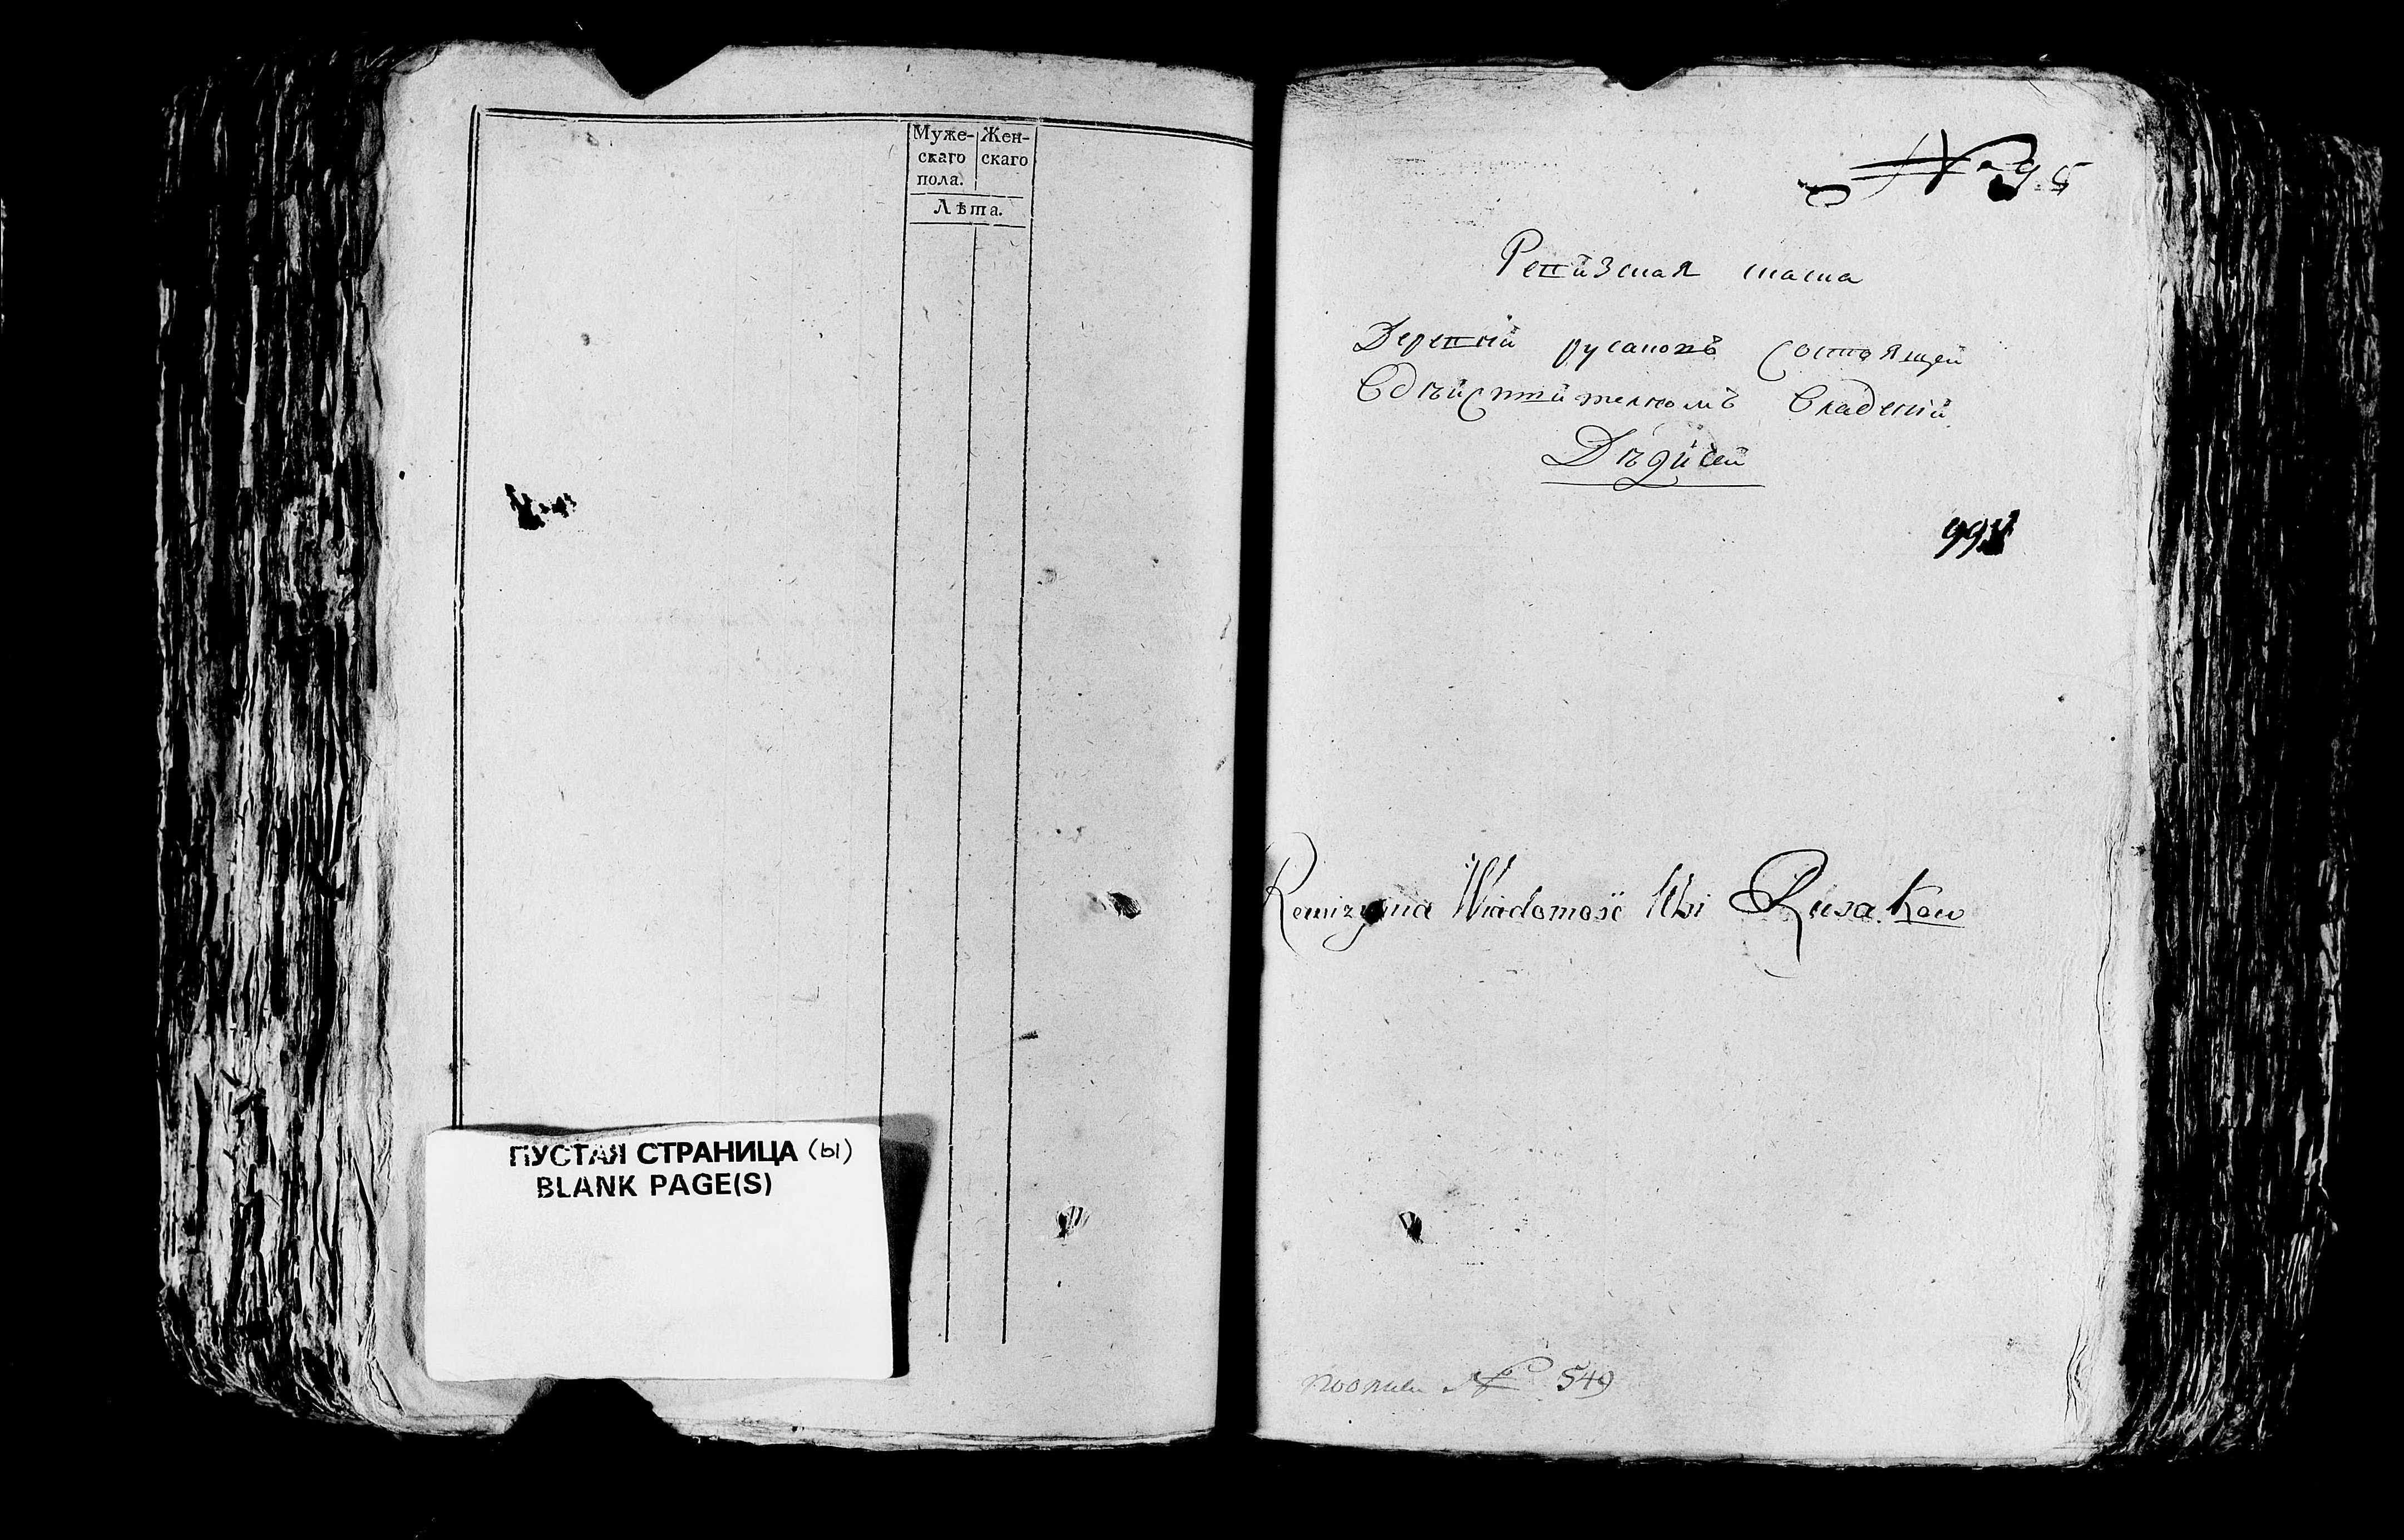 Муже- Жен-
скаго скаго
пола.
Лѣта.
ПУСТАЯ СТРАНИЦА (ы)
BLANK PAGE(S)
№ 95
Ревизская скаска
Деревни русаковъ Состоящей
Вдѣйствителномъ Владении
Дѣдичей
Rewizyina Wiadomość Wsi Rusakow
№ 549